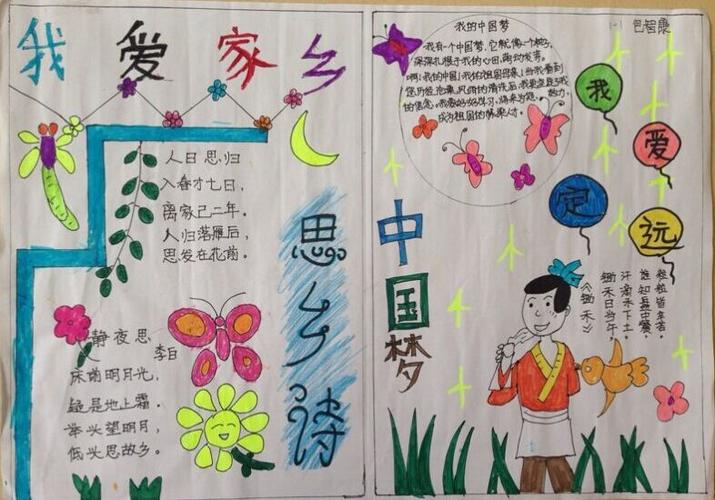 我爱家乡
人日思归
入春才七日，
离家已二年。
人归落雁后，
思发在花前。
思乡诗
静夜思
李白
床前明月光，
疑是地上霜。
举头望明月，
低头思故乡。
我的中国梦
巴智康
我有一个中国梦，它就像一个种子，
深深扎根于我的心田，萌动发芽。
啊！我的中国！我的祖国母亲！当我看到
我爱定远
中国梦
《锄禾》
锄禾日当午，
汗滴禾下土。
谁知盘中餐，
粒粒皆辛苦。